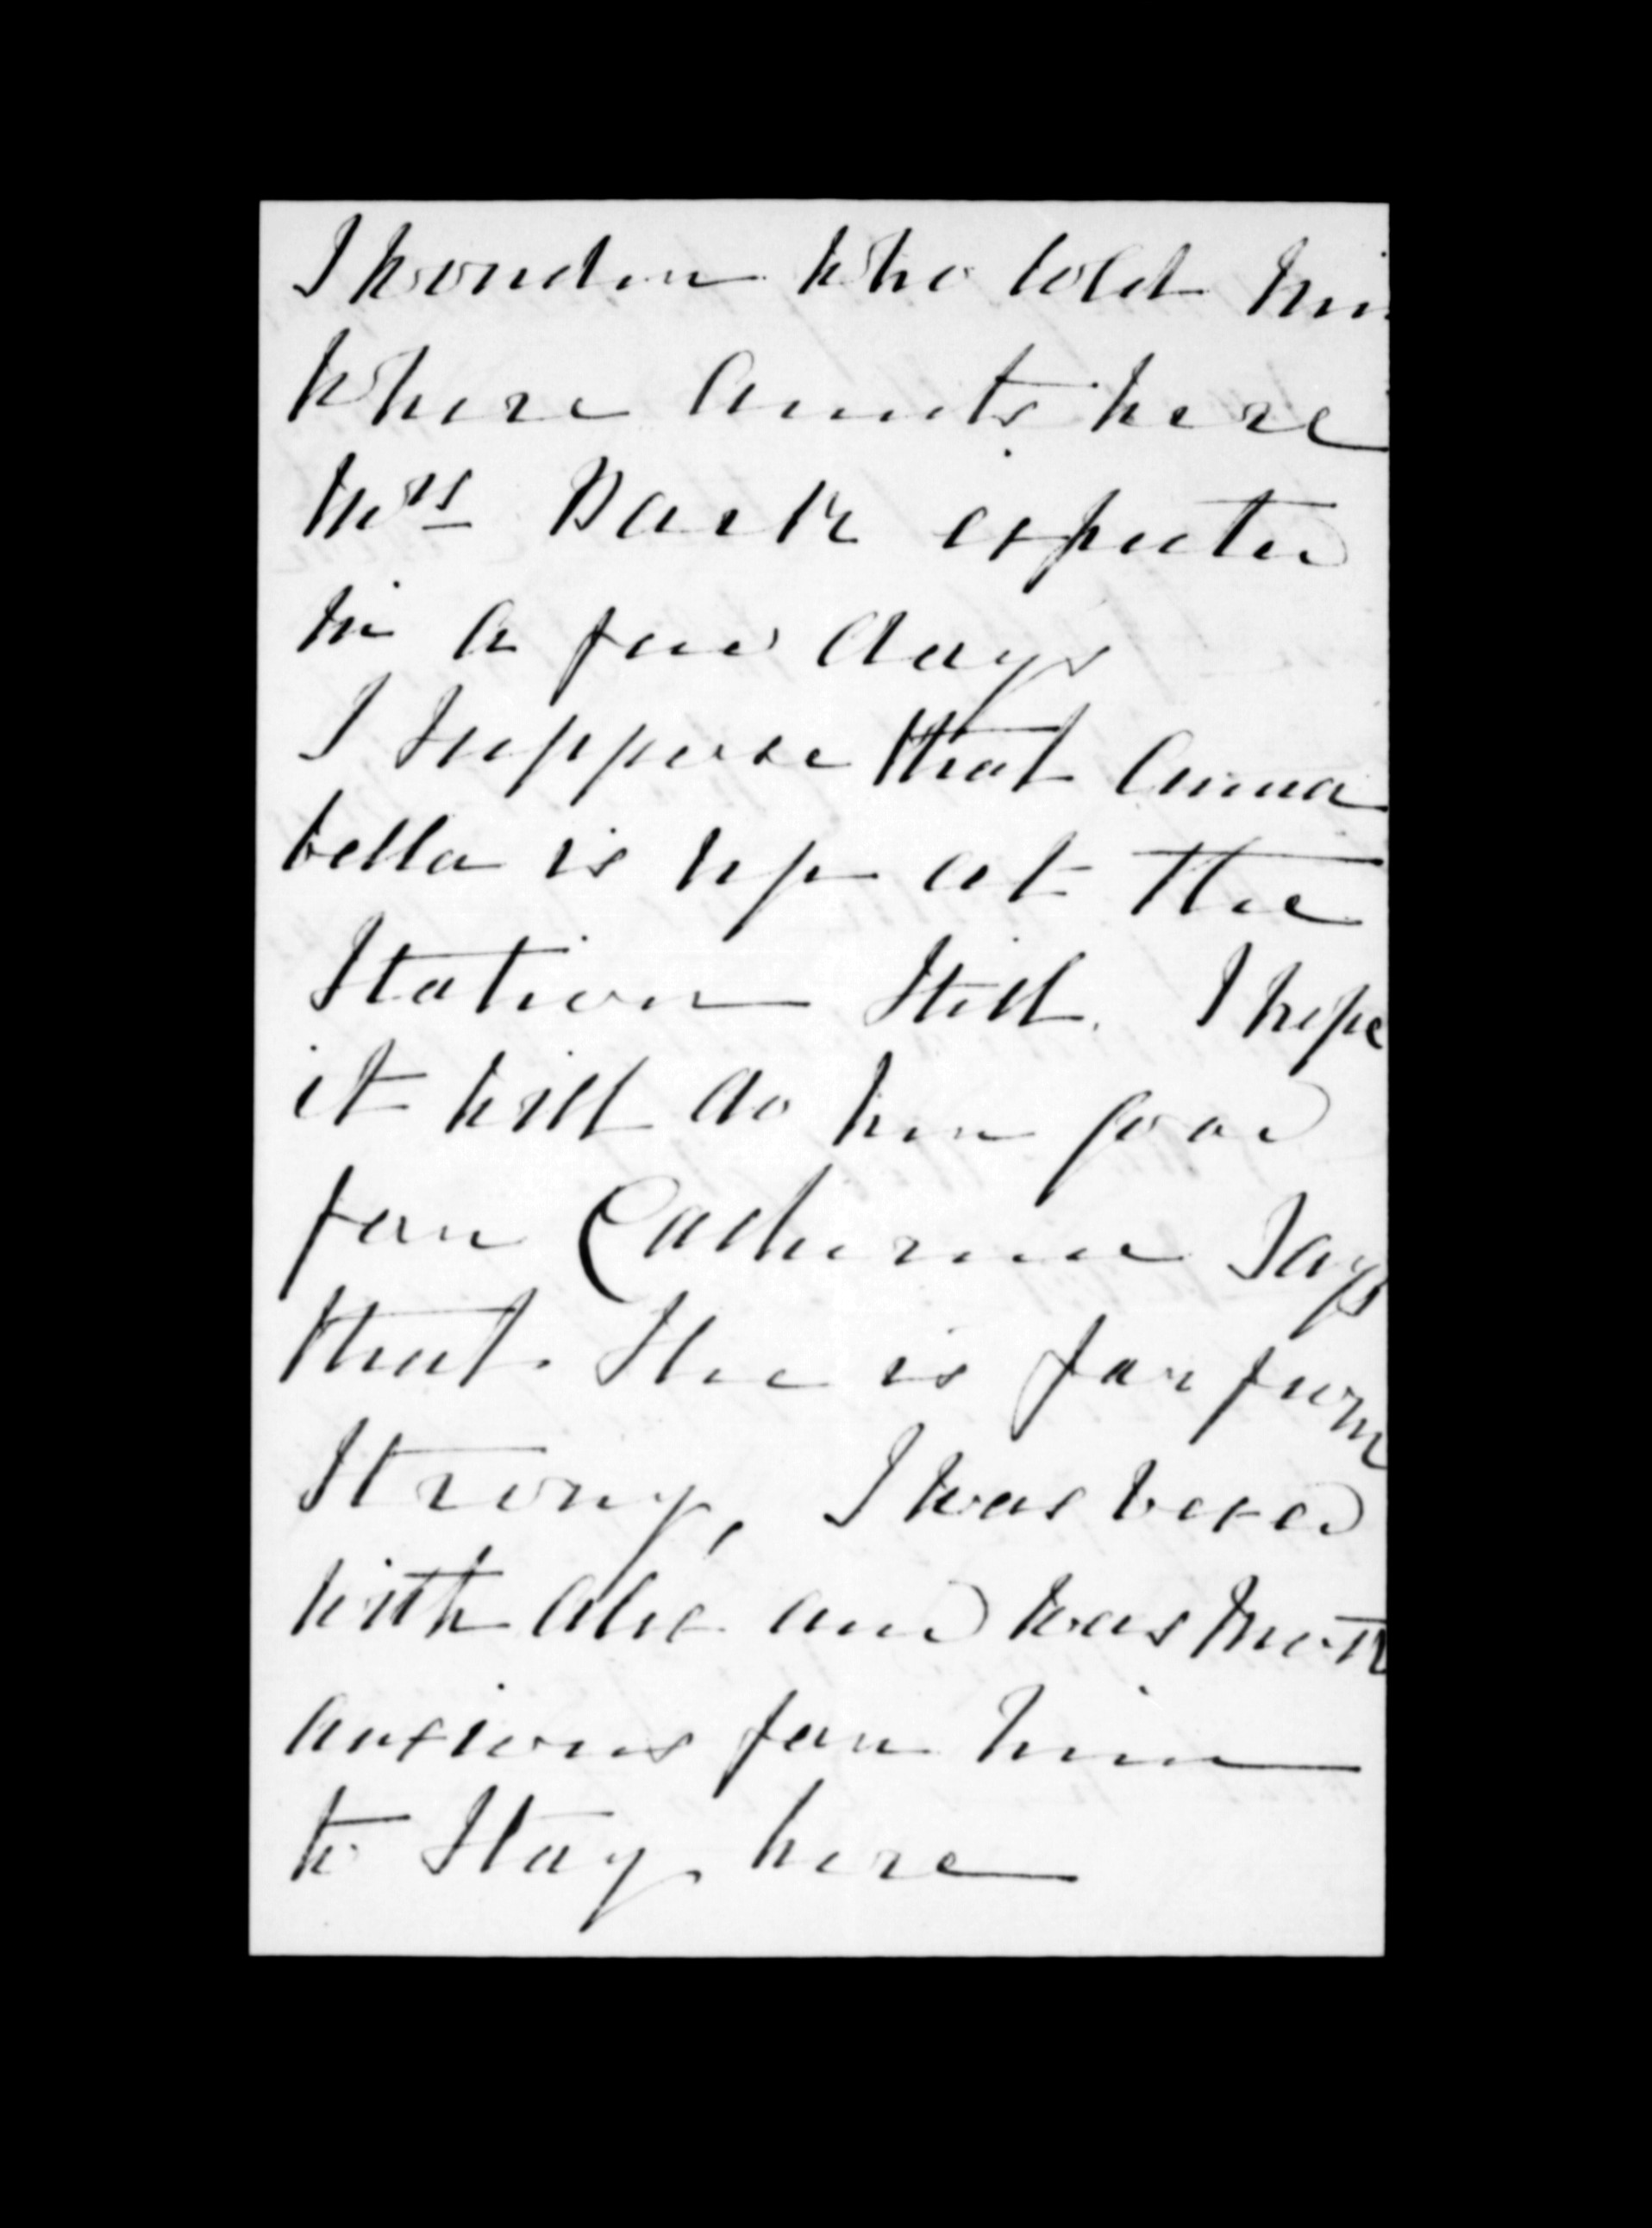 I wonder who told him
where Aunts were
Mrs Dark expected
in a few days
I suppose that Anna
bella is up at the
Station Still. I hope
it will do her good
for Catherine Says
that She is far from
Strong, I was vexed
with Alec and was most
anxious for him
to Stay here